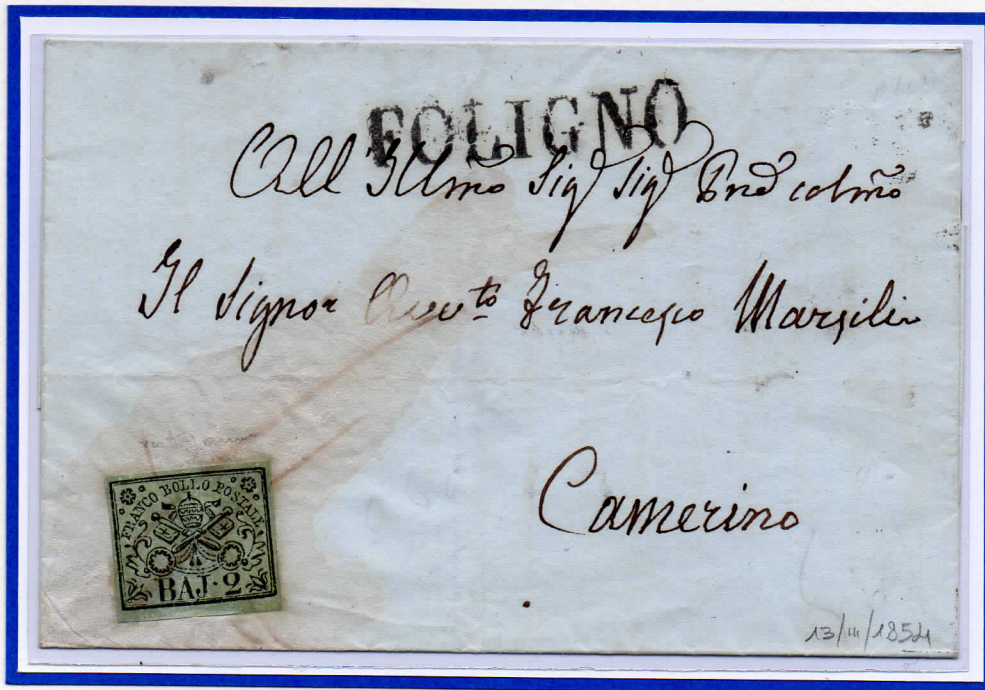 FOLIGNO
All Illmo Sig Sig Pnē colmo
Il Signor Avv.to Francesco Marsili
Camerino
FRANCO BOLLO POSTALE
BAJ·2
13/III/1854